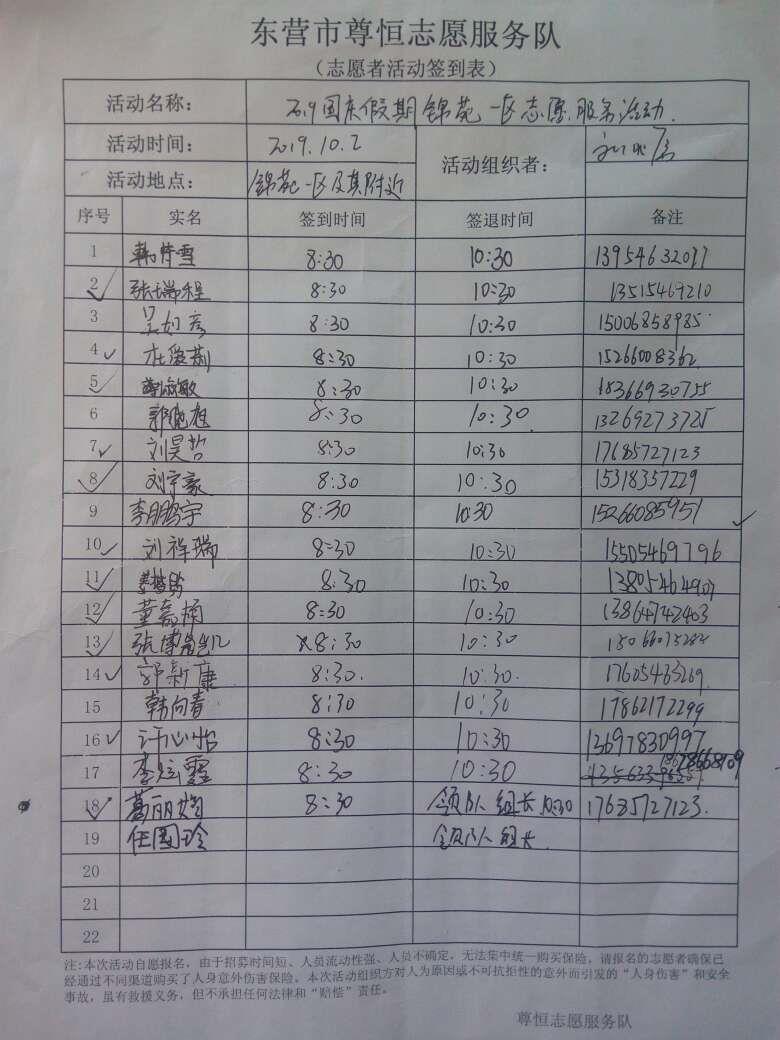 东营市尊恒志愿服务队
（志愿者活动签到表）
活动名称： 2019国庆假期锦苑一区志愿服务活动
活动时间： 2019.10.2 活动组织者：
活动地点： 锦苑一区及其附近
序号 实名 签到时间 签退时间 备注
1 8:30 10:30
2 张瑞程 8:30 10:30 13515469210
3 8:30 10:30 15006858985
4 杜爱荆 8:30 10:30 15266008362
5 8:30 10:30 18366930755
6 8:30 10:30 13269273725
7 刘昊哲 8:30 10:30 17685727123
8 刘宇豪 8:30 10:30 15318357229
9 李鹏宇 8:30 10:30 15266085951
10 刘祥瑞 8:30 10:30 15505469796
11 8:30 10:30 13805464907
12 8:30 10:30 13864742403
13 8:30 10:30
14 郭新康 8:30 10:30 17605463269
15 韩向春 8:30 10:30 17862172299
16 许心怡 8:30 10:30 13697830997
17 8:30 10:30
18 葛丽娟 8:30 领队组长 10:30 17685727123
19 任国玲 领队人组长
20
21
22
注:本次活动自愿报名，由于招募时间短、人员流动性强、人员不确定，无法集中统一购买保险，请报名的志愿者确保已
经通过不同渠道购买了人身意外伤害保险。本次活动组织方对人为原因或不可抗拒性的意外而引发的“人身伤害”和安全
事故，虽有救援义务，但不承担任何法律和“赔偿”责任。
尊恒志愿服务队